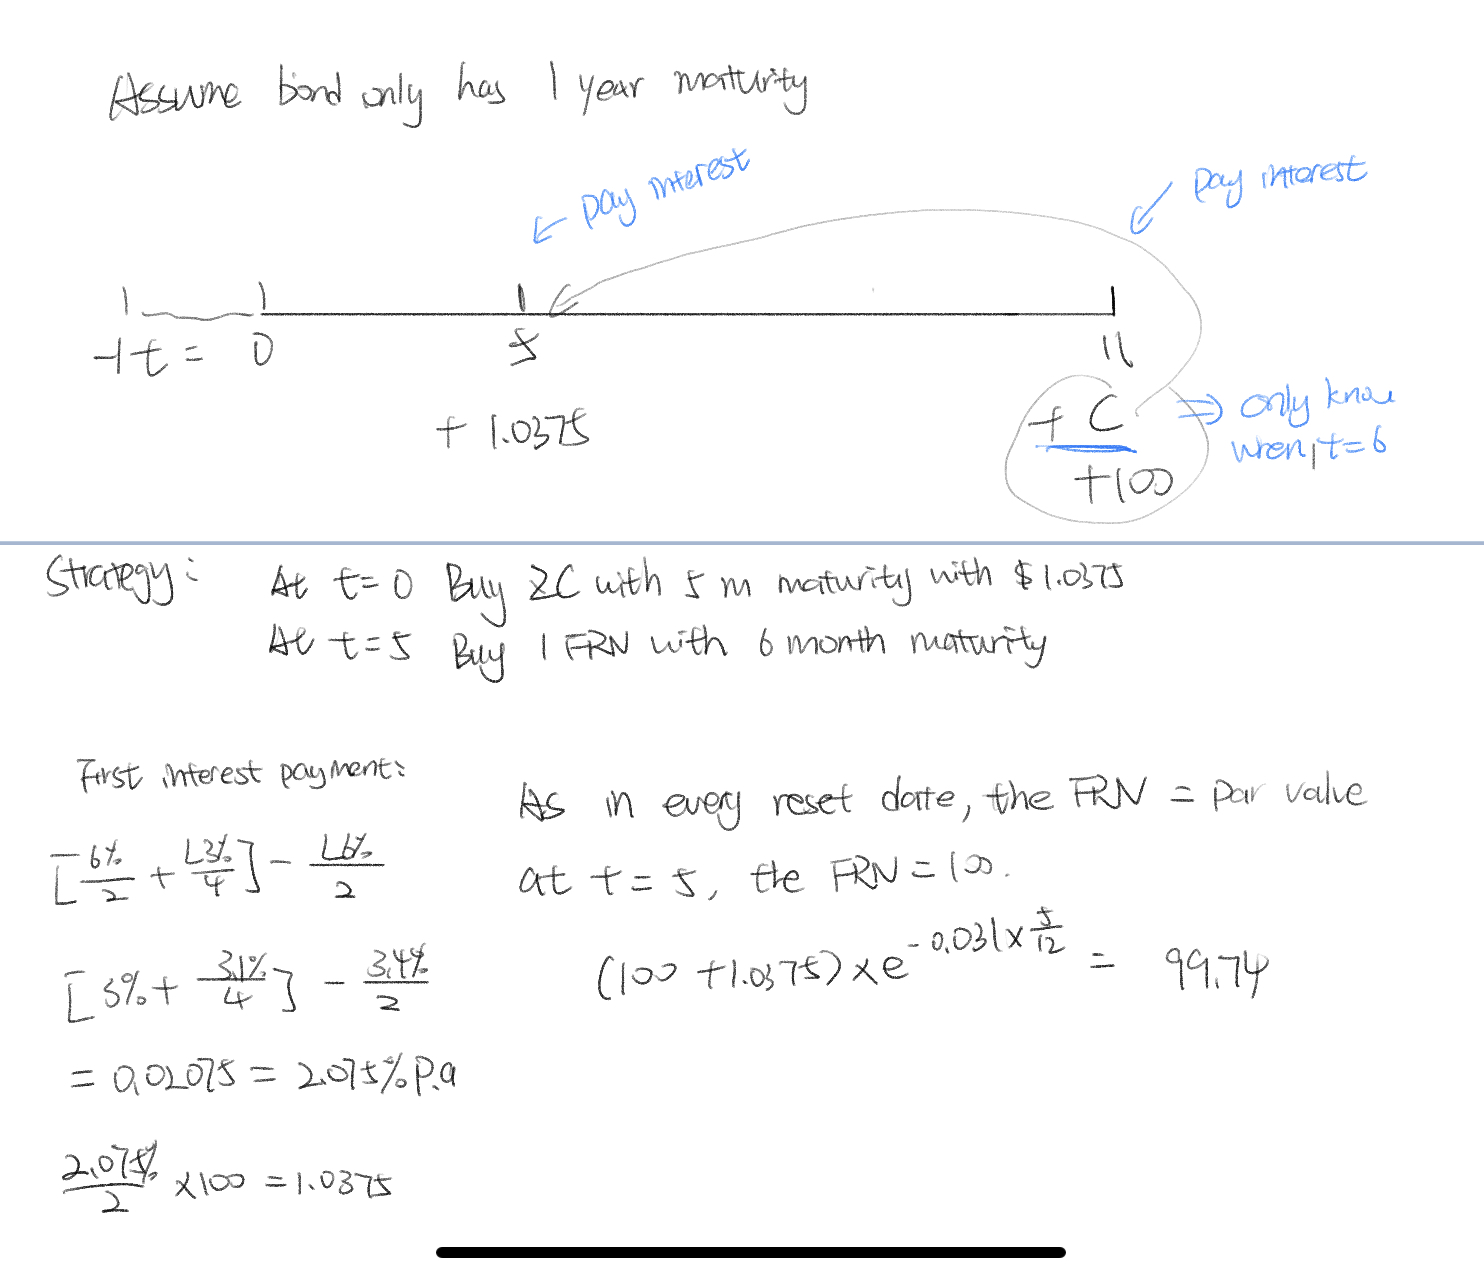 Assume bond only has 1 year maturity
pay interest
pay interest
-1 t = 0 5 11
+ 1.0375
+ C
+100
⇒ only know
when t=6
Strategy: At t=0 Buy ZC with 5 m maturity with $1.0375
At t=5 Buy 1 FRN with 6 month maturity
First interest payment:
[6%/2 + L3%/4] - L6%/2
[3% + 3.1%/4] - 3.4%/2
= 0.02075 = 2.075% p.a
2.075%/2 ×100 = 1.0375
As in every reset date, the FRN = par value
at t = 5, the FRN = 100.
(100 + 1.0375) × e^-0.031×5/12 = 99.74